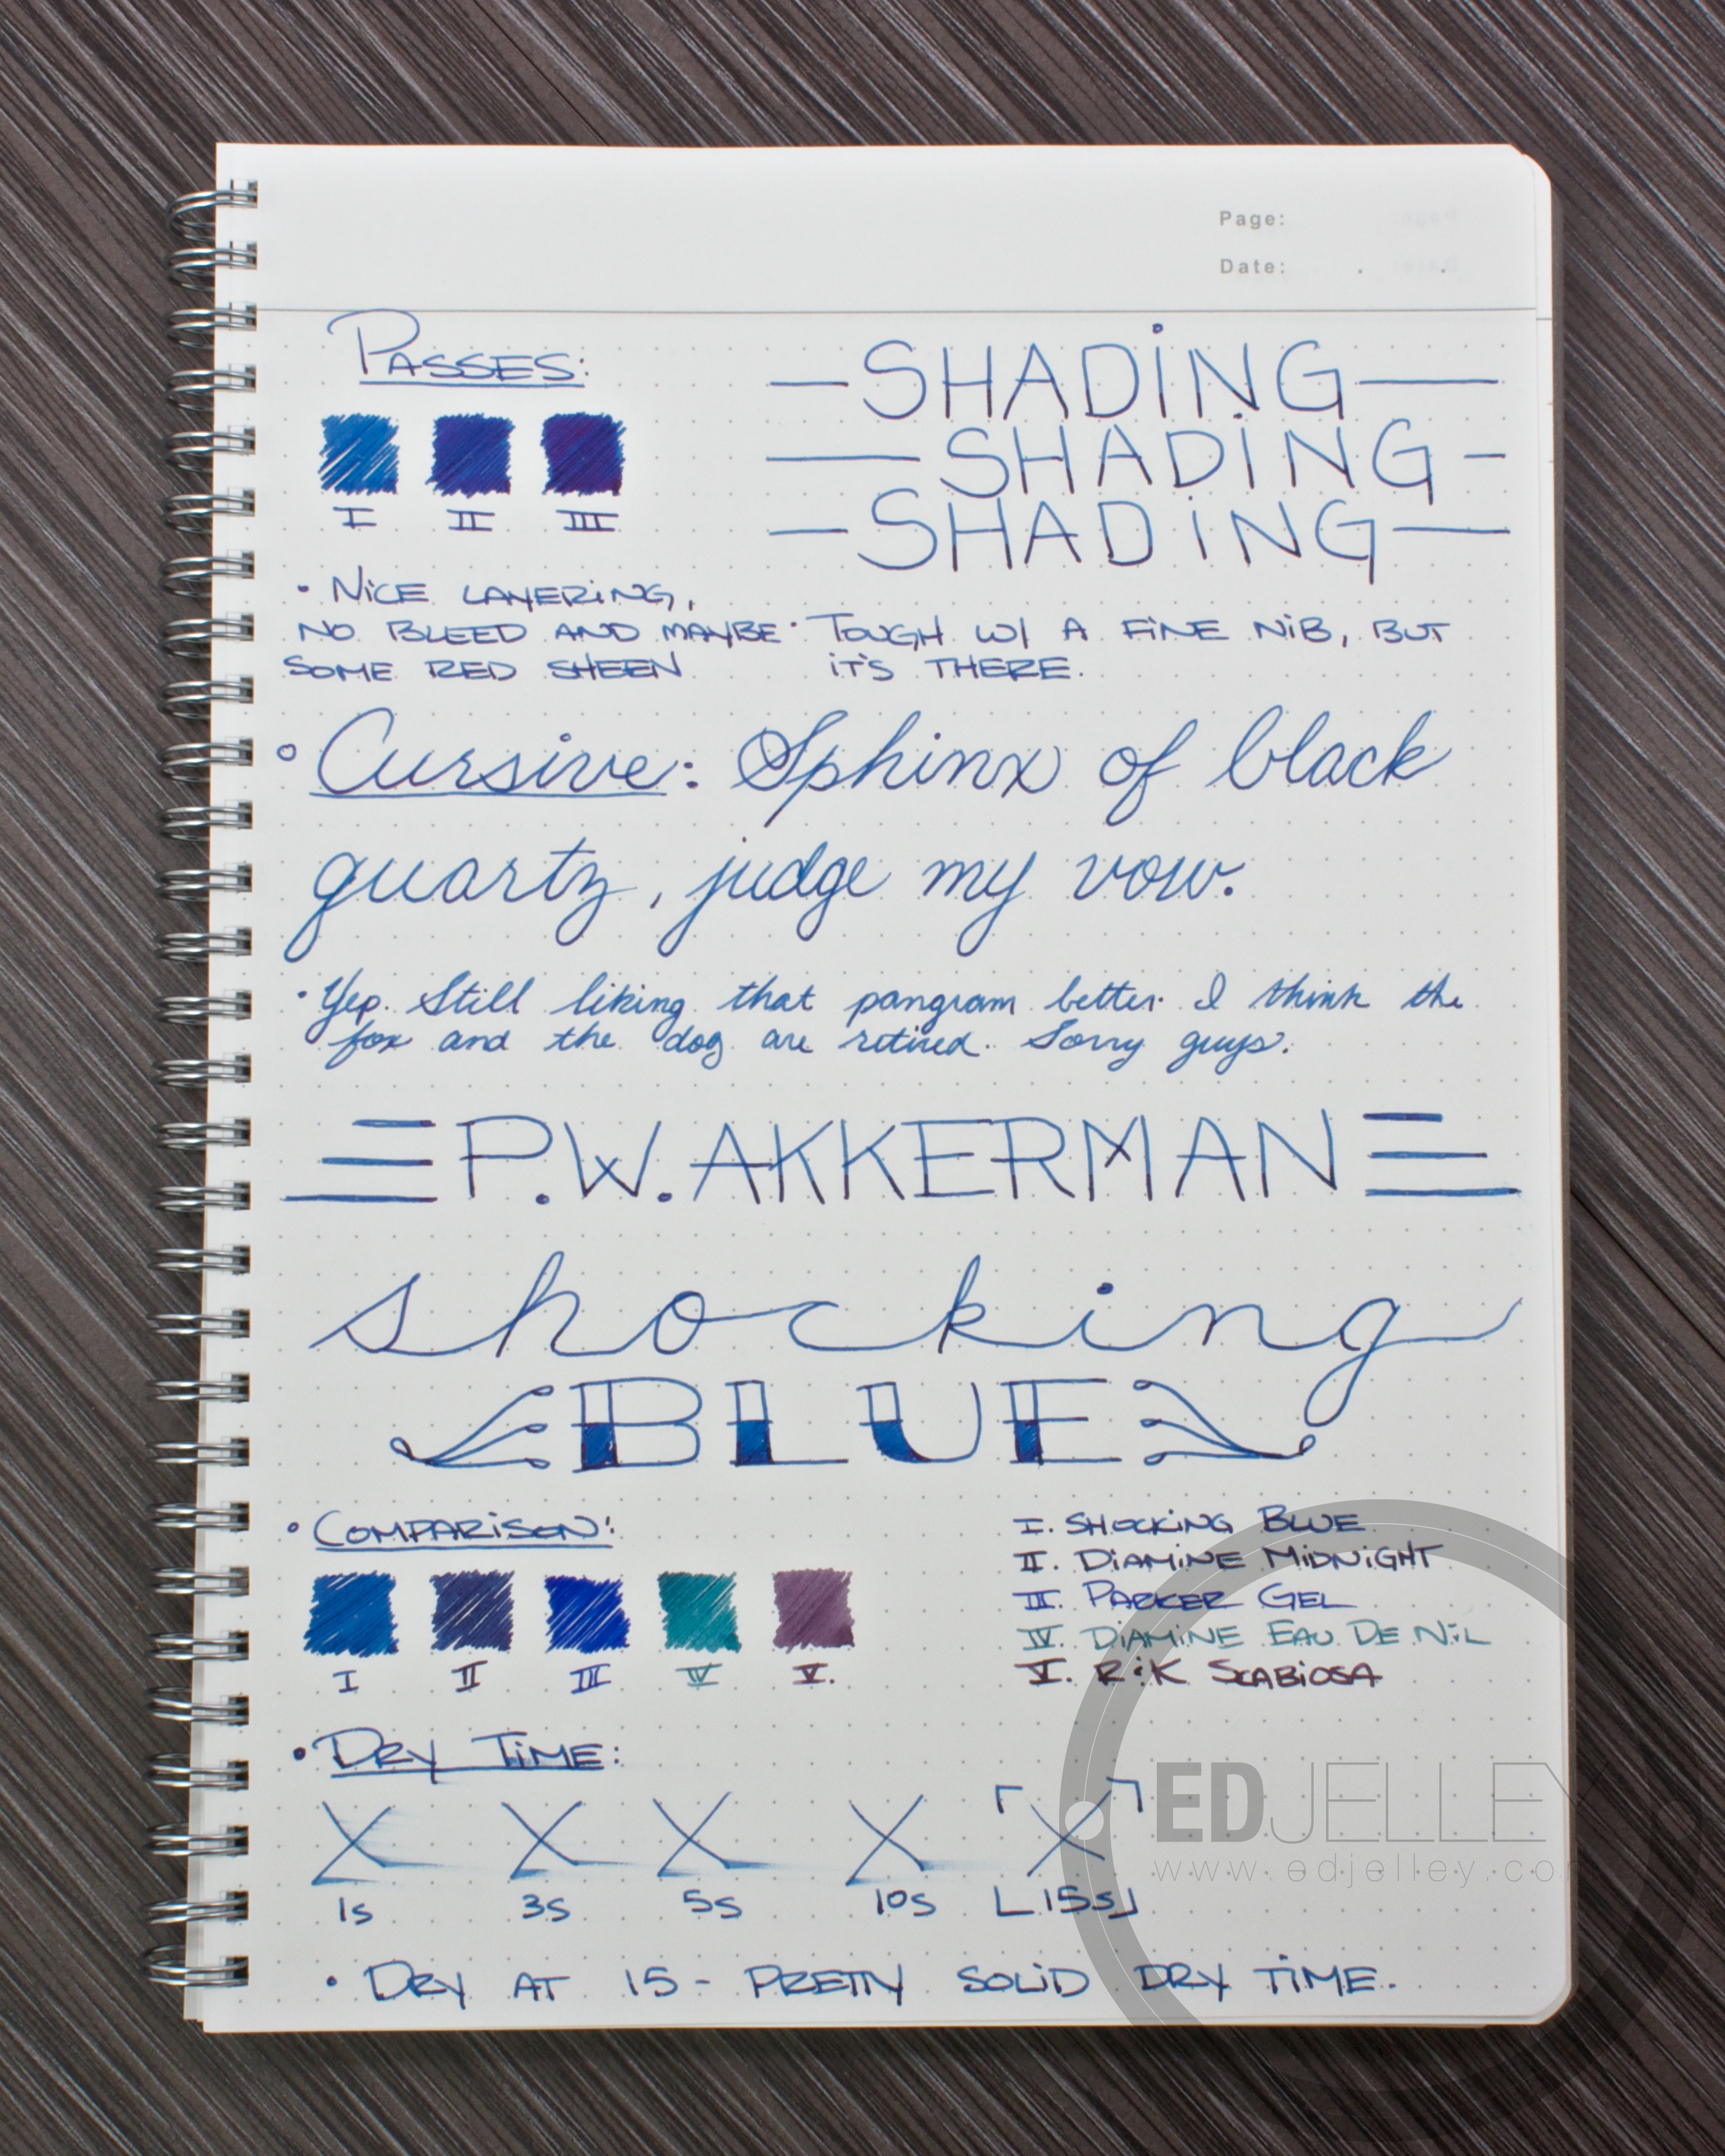 Page:
Date: . .
PASSES:
I II III
• NiCE LAYERiNG,
NO BLEED AND MAYBE
SOME RED SHEEN
—SHADiNG—
—SHADiNG—
—SHADiNG—
• TOUGH W/ A FiNE NiB, BUT
iT'S THERE.
Cursive: Sphinx of black
quartz, judge my vow.
• Yep. Still liking that pangram better. I think the
fox and the dog are retired. Sorry guys.
P.W. AKKERMAN
shocking
BLUE
• COMPARiSON:
I II III IV V.
I. SHOCKiNG BLUE
II. DiAMiNE MiDNiGHT
III. PARKER GEL
IV. DiAMiNE EAU DE NiL
V. R&K SCABiOSA
• DRY TiME:
1s 3s 5s 10s 15s
• DRY AT 15 - PRETTY SOLiD DRY TiME.
EDJELLEY
www.edjelley.co